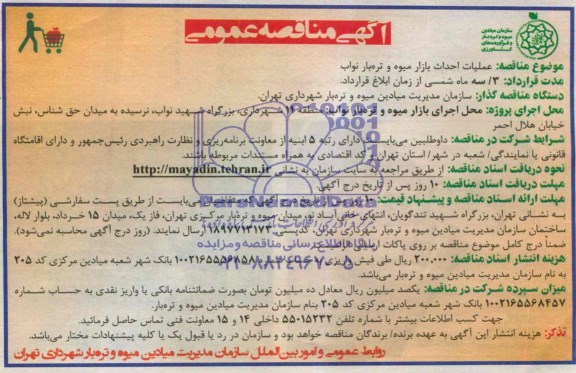 آگهی مناقصه عمومی
سازمان میادین
میوه و تره‌بار
و فرآورده‌های
کشاورزی
موضوع مناقصه: عملیات احداث بازار میوه و تره‌بار نواب
مدت قرارداد: ۳/ سه ماه شمسی از زمان ابلاغ قرارداد.
دستگاه مناقصه گذار: سازمان مدیریت میادین میوه و تره‌بار شهرداری تهران.
محل اجرای پروژه: محل اجرای بازار میوه و تره‌بار نواب: منطقه شهرداری، بزرگراه شهید نواب، نرسیده به میدان حق شناس، نبش
خیابان هلال احمر
شرایط شرکت در مناقصه: داوطلبین می‌بایست دارای رتبه ۵ ابنیه از معاونت برنامه‌ریزی و نظارت راهبردی رئیس‌جمهور و دارای اقامتگاه
قانونی یا نمایندگی/ شعبه در شهر/ استان تهران و کد اقتصادی به همراه مستندات مربوطه باشند
نحوه دریافت اسناد مناقصه: از طریق مراجعه به سایت سازمان به نشانی http://mayadin.tehran.ir
مهلت دریافت اسناد مناقصه: ۱۰ روز پس از تاریخ درج آگهی.
مهلت ارائه اسناد مناقصه و پیشنهاد قیمت: می‌بایست از طریق پست سفارشی (پیشتاز)
به نشانی تهران، بزرگراه شهید تندگویان، انتهای میدان میوه و تره‌بار مرکزی تهران، فاز یک، میدان ۱۵ خرداد، بلوار لاله،
ساختمان سازمان مدیریت میادین میوه و تره‌بار شهرداری تهران، کدپستی ارسال نمایند. (روز درج آگهی محاسبه نمی‌شود).
ضمناً درج کامل موضوع مناقصه بر روی پاکات
هزینه انتشار اسناد مناقصه: ۲۰۰.۰۰۰ ریال طی فیش بانک شهر شعبه میادین مرکزی کد ۲۰۵
به نام سازمان مدیریت میادین میوه و تره‌بار می‌باشد.
میزان سپرده شرکت در مناقصه: یکصد میلیون ریال معادل ده میلیون تومان بصورت ضمانتنامه بانکی یا واریز نقدی به حساب شماره
۱۰۰۲۱۶۵۵۶۸۴۵۷ بانک شهر شعبه میادین مرکزی کد ۲۰۵ بنام سازمان مدیریت میادین میوه و تره‌بار.
جهت کسب اطلاعات بیشتر با شماره تلفن ۵۵۰۱۵۲۳۲ داخلی ۱۴ و ۱۵ معاونت فنی تماس حاصل فرمائید.
تذکر: هزینه انتشار این آگهی به عهده برنده/ برندگان مناقصه خواهد بود و سازمان در رد یا قبول یک یا کلیه پیشنهادات مختار می‌باشد.
روابط عمومی و امور بین‌الملل سازمان مدیریت میادین میوه و تره‌بار شهرداری تهران
ParsNamadData
پایگاه اطلاع رسانی مناقصه و مزایده
۰۲۱-۸۸۳۴۹۶۷۰-۵